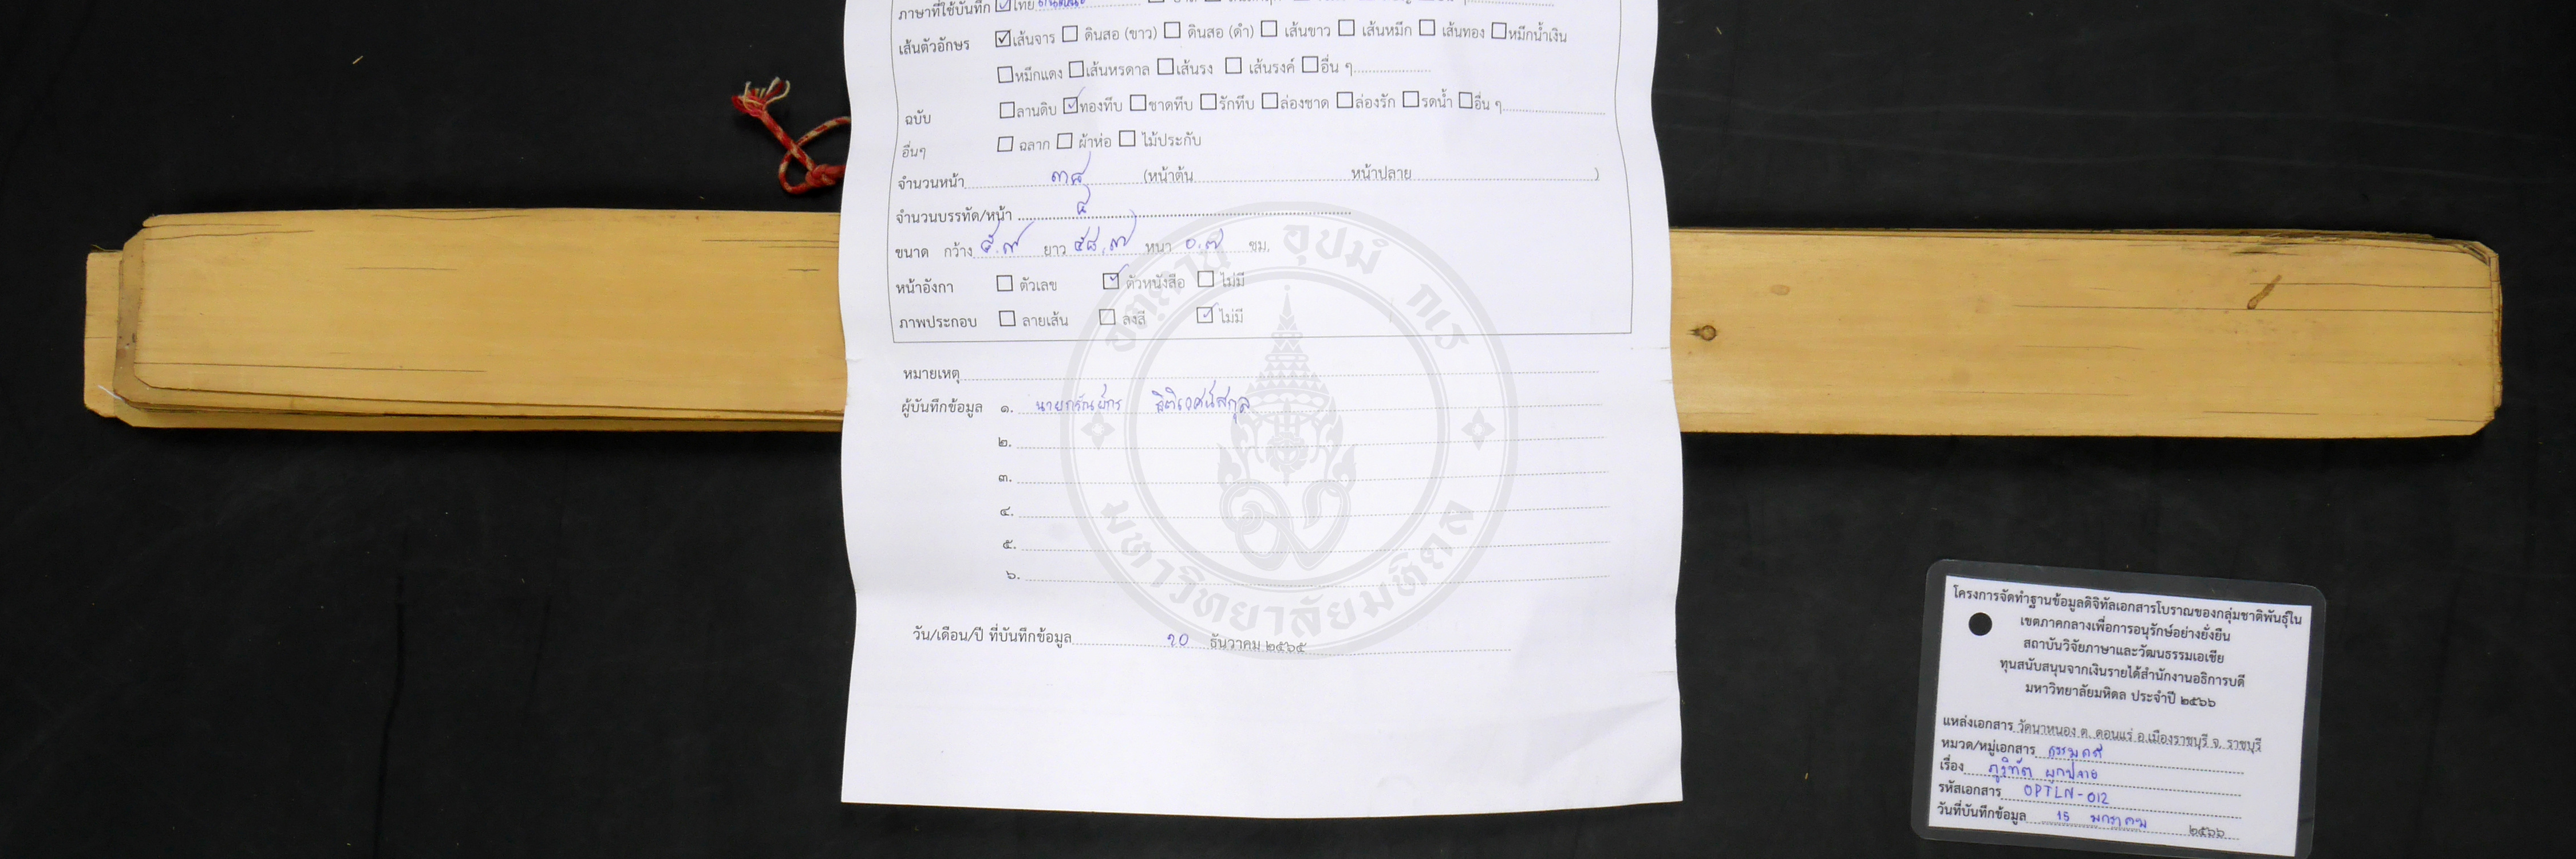 ภาษาที่ใช้บันทึก ☑ไทย
เส้นตัวอักษร ☑เส้นจาร ☐ ดินสอ (ขาว) ☐ ดินสอ (ดำ) ☐ เส้นขาว ☐ เส้นหมึก ☐ เส้นทอง ☐หมึกน้ำเงิน
☐หมึกแดง ☐เส้นหรดาล ☐เส้นรง ☐ เส้นรงค์ ☐อื่น ๆ
ฉบับ ☐ลานดิบ ☑ทองทึบ ☐ชาดทึบ ☐รักทึบ ☐ล่องชาด ☐ล่องรัก ☐รดน้ำ ☐อื่น ๆ
อื่นๆ ☐ ฉลาก ☐ ผ้าห่อ ☐ ไม้ประกับ
จำนวนหน้า ๓๘ (หน้าต้น หน้าปลาย )
จำนวนบรรทัด/หน้า ๔
ขนาด กว้าง ยาว ๕๘.๗ หนา ๐.๗ ซม.
หน้าอังกา ☐ ตัวเลข ☑ ตัวหนังสือ ☐ ไม่มี
ภาพประกอบ ☐ ลายเส้น ☐ ลงสี ☑ ไม่มี
หมายเหตุ
ผู้บันทึกข้อมูล ๑. ธิติเวศน์สกุล
๒.
๓.
๔.
๕.
๖.
วัน/เดือน/ปี ที่บันทึกข้อมูล ๒๐ ธันวาคม ๒๕๖๕
อตฺตานํ อุปมํ กเร
มหาวิทยาลัยมหิดล
โครงการจัดทำฐานข้อมูลดิจิทัลเอกสารโบราณของกลุ่มชาติพันธุ์ใน
เขตภาคกลางเพื่อการอนุรักษ์อย่างยั่งยืน
สถาบันวิจัยภาษาและวัฒนธรรมเอเชีย
ทุนสนับสนุนจากเงินรายได้สำนักงานอธิการบดี
มหาวิทยาลัยมหิดล ประจำปี ๒๕๖๖
แหล่งเอกสาร วัดนาหนอง ต. ดอนแร่ อ.เมืองราชบุรี จ. ราชบุรี
หมวด/หมู่เอกสาร ธรรมคดี
เรื่อง ภูริทัต ผูกปลาย
รหัสเอกสาร OPTLN-012
วันที่บันทึกข้อมูล 15 มกราคม ๒๕๖๖